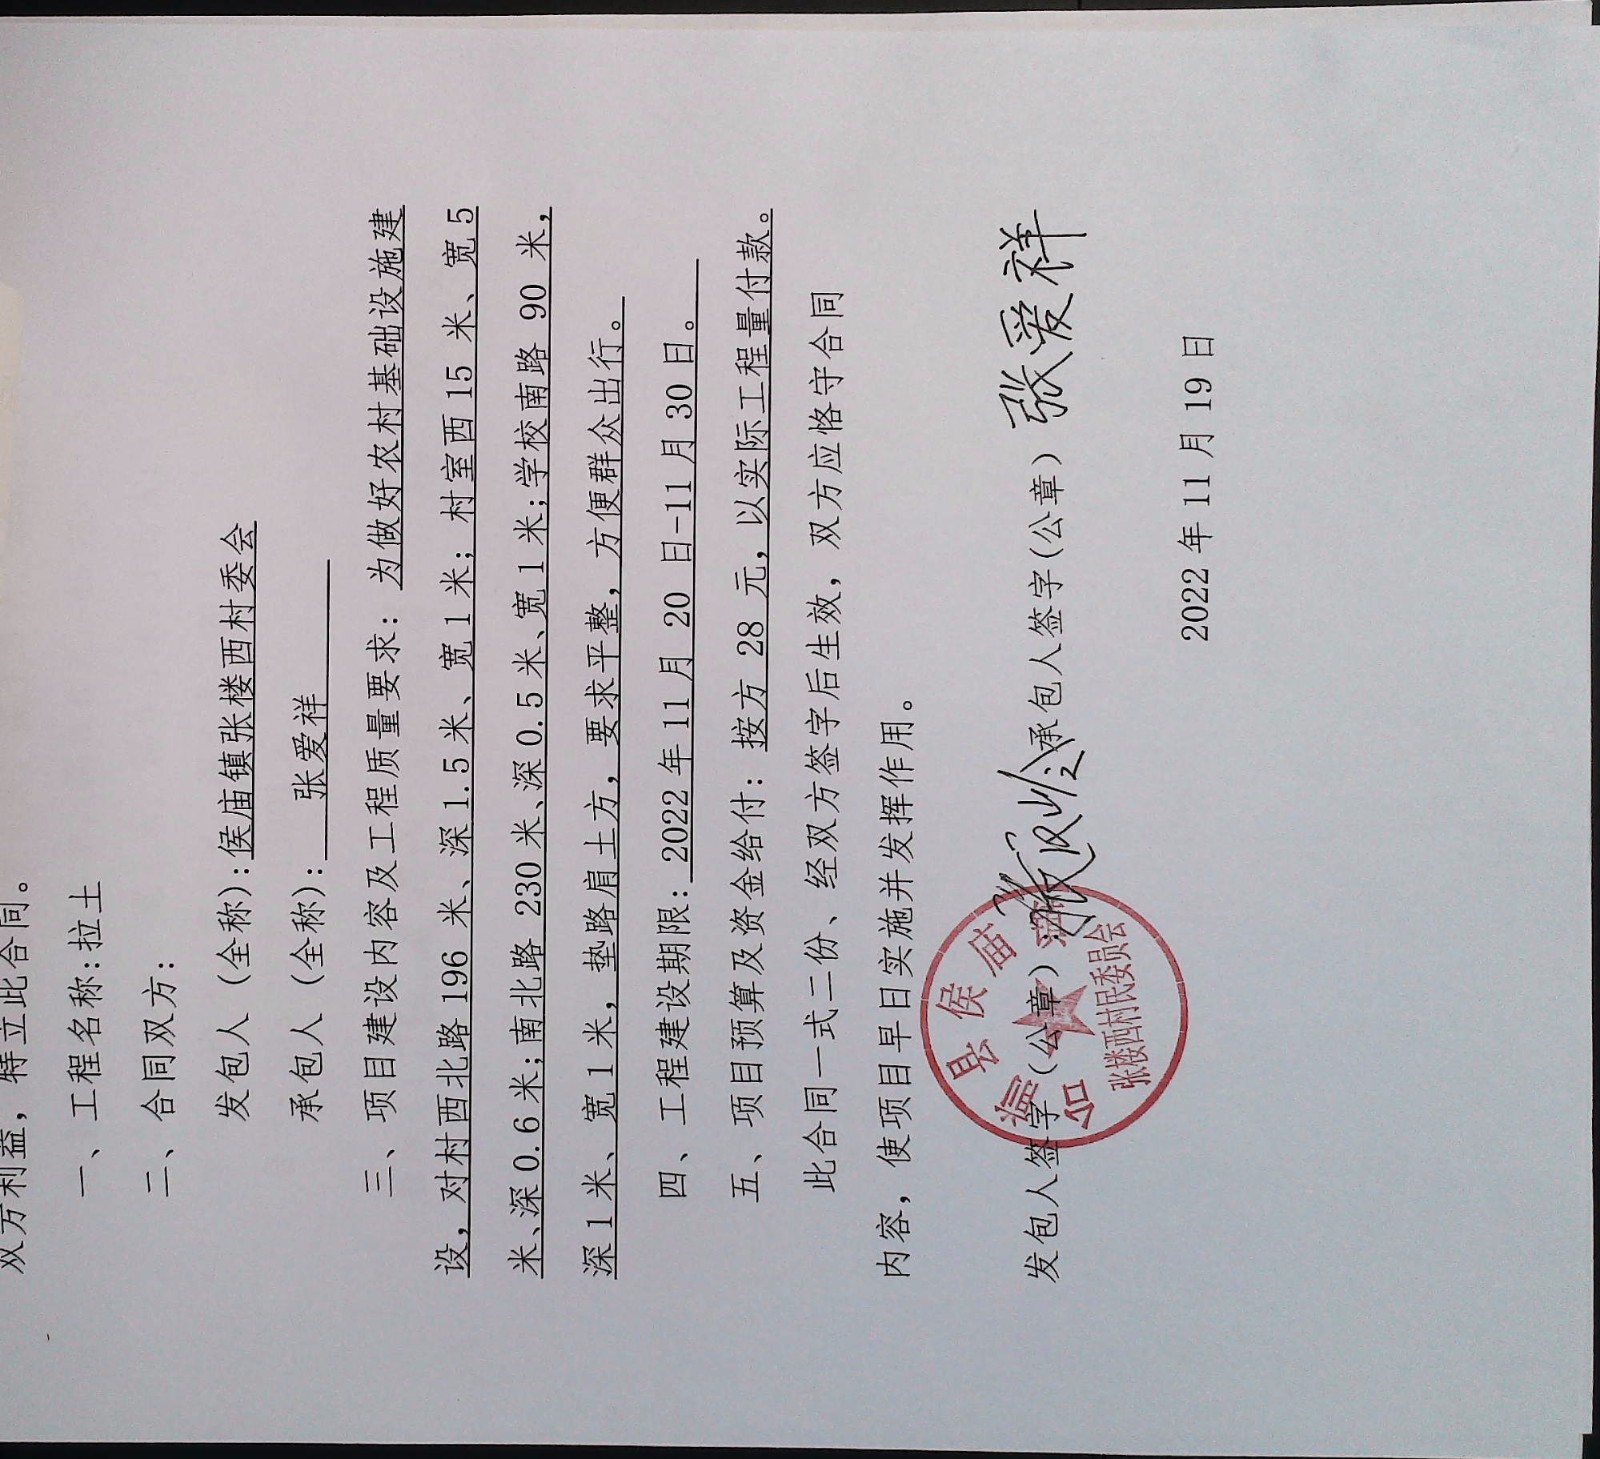 双方利益，特立此合同。
一、工程名称:拉土
二、合同双方:
发包人（全称）:侯庙镇张楼西村委会
承包人（全称）: 张爱祥
三、项目建设内容及工程质量要求: 为做好农村基础设施建
设，对村西北路196 米、深1.5米、宽1米; 村室西15 米、宽5
米、深0.6米;南北路230米、深0.5米、宽1米;学校南路 90 米,
深1米、宽1米，垫路肩土方，要求平整，方便群众出行。
四、工程建设期限: 2022 年 11 月 20 日-11 月 30 日。
五、项目预算及资金给付: 按方 28 元，以实际工程量付款。
此合同一式二份、经双方签字后生效，双方应恪守合同
内容，使项目早日实施并发挥作用。
发包人签字（公章）: 承包人签字(公章) 张爱祥
台前县侯庙镇
张楼西村民委员会
2022 年 11 月 19 日